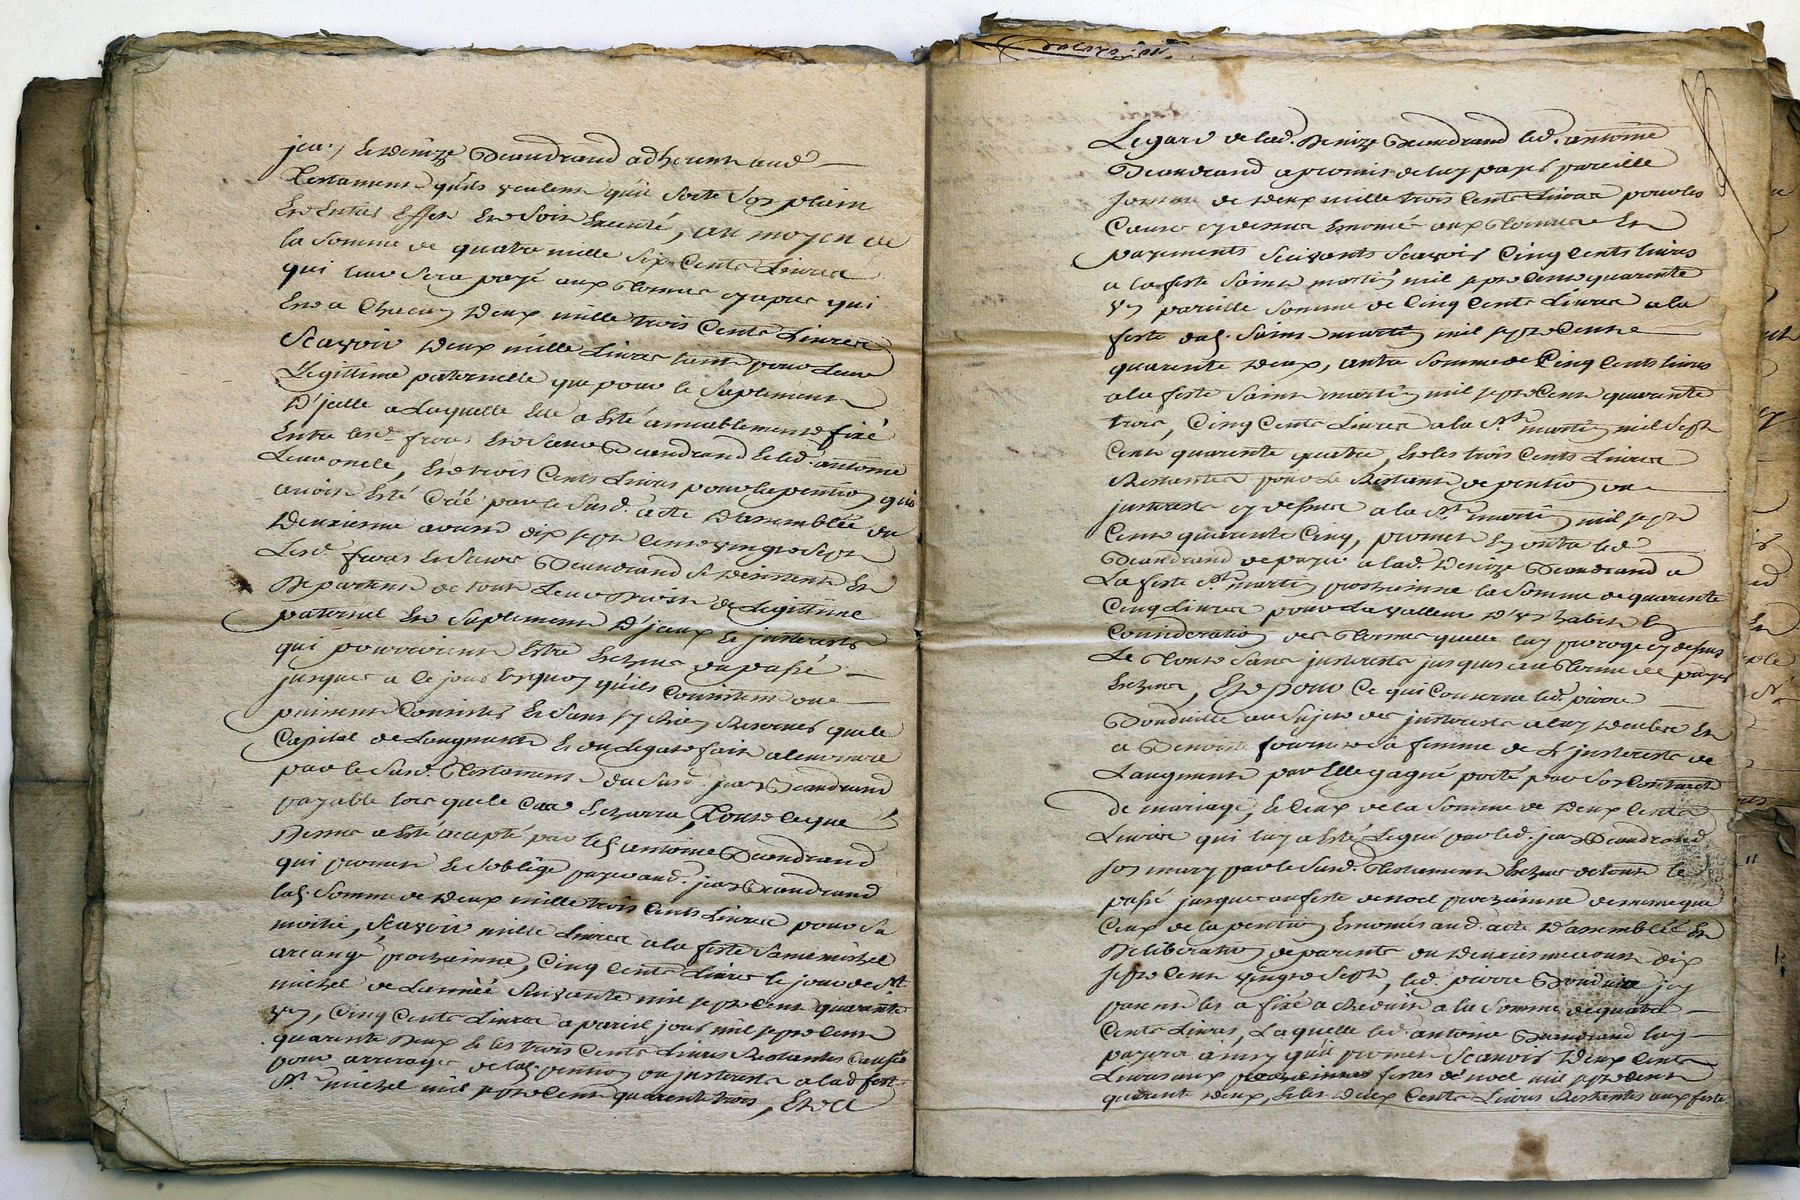 jean et Denize Deandrand adherent aud
Testament qu'ils veulent qu'il sorte son plein
Et Entier Effet Et Soit Executé, au moyen de
la Somme de quatre mille Six Cents Livres
qui leur Sera payé aux termes cy apres qui
Est a Chacun Deux mille trois Cents Livres
Scavoir Deux mille Livres tant pour Leur
Legittime paternelle que pour le Suplement
D'jcelle a Laquelle Elle a Esté amiablement fixé
Entre lesd. freres Et Soeur Deandrand Et led. antoine
Leur oncle, Et trois Cents Livres pour la pention qui
avoit Esté Créé par le Susd. acte D'assemblée du
Deuxieme avoust dix Sept Cent vingt Sept
Lesd. freres Et Soeur Deandrand Se Desistent Et
Departent de tout Leur Droit de Legittime
paternel Et Suplement D'jceux Et jnterests
qui pourroient Estre Echeus du passé
jusques a Ce jour En quoy qu'ils Consistent ou
puissent Consister Et Sans S'y Rien Reserver que le
Capital de Laugment Et du Legat fait a leur mere
par le Susd. Testament du Susd. jean Deandrand
payable lors que le Cas Echerra, Tout Ce que
Dessus a Esté accepté par led. antoine Deandrand
qui promet Et S'oblige payer aud. jean Deandrand
lad. Somme de Deux mille trois Cents Livres pour Sa
moitié, Scavoir mille Livres a la feste Saint michel
arcange prochainne, Cinq Cents Livres le jour de St
michel de L'année Suivante mil Sept Cent quarante
un, Cinq Cents Livres a pareil jour mil Sept Cent
quarante Deux Et les trois Cents Livres Restantes Causés
pour arrerages de lad. pention ou jnterests a lad. feste
St. michel mil Sept Cent quarente trois, Et a
L'egard de lad. Denize Deandrand led. antoine
Deandrand a promis de luy payer pareille
Somme de Deux mille trois Cents Livres pour les
Causes cy dessus Enoncé aux termes Et
payements Suivants Scavoir Cinq Cents livres
a la feste Saint martin mil Sept Cent quarente
un pareille Somme de Cinq Cents Livres a la
feste dud. Saint martin mil Sept Cent
quarente Deux, autre Somme de Cinq Cents livres
a la feste Saint martin mil Sept Cent quarente
trois, Cinq Cents Livres a la St. martin mil Sept
Cent quarente quatre, Et les trois Cents Livres
Restantes pour le Restant de pention ou
jnterests cy dessus a la St. martin mil Sept
Cent quarente Cinq, promet En outre led.
Deandrand de payer a lad. Denize Deandrand a
La feste St. martin prochainne la Somme de quarente
Cinq Livres pour La valleur D'un habit En
Consideration des termes quelle luy proroge cy dessus
Le tout Sans jnterests jusques au terme de payes
Echeus, Et pour Ce qui Concerne led. pierre
au Sujet des jnterests a luy Deubs Et
a Benoite fournier Sa femme de L'jnterests de
Laugment par Elle gagné porté par Son Contract
de mariage, Et Ceux de la Somme de Deux Cents
Livres qui luy a Esté Legué par led. jean Deandrand
Son mary par le Susd. Testament Echus de tout le
passé jusques au feste de noel prochainne de meme que
Ceux de la pention Enoncés aud. acte D'assemblée Et
Deliberation de parents du Deuxieme aoust dix
Sept Cent vingt Sept, led. pierre jcy
present les a fixé a Reduire a la Somme de quatre
Cents Livres, Laquelle led. antoine Deandrand luy
payera ainsy qu'il promet Scavoir Deux Cents
Livres aux prochainnes festes de noel mil Sept Cent
quarente Deux, Et les Deux Cents Livres Restantes aux feste